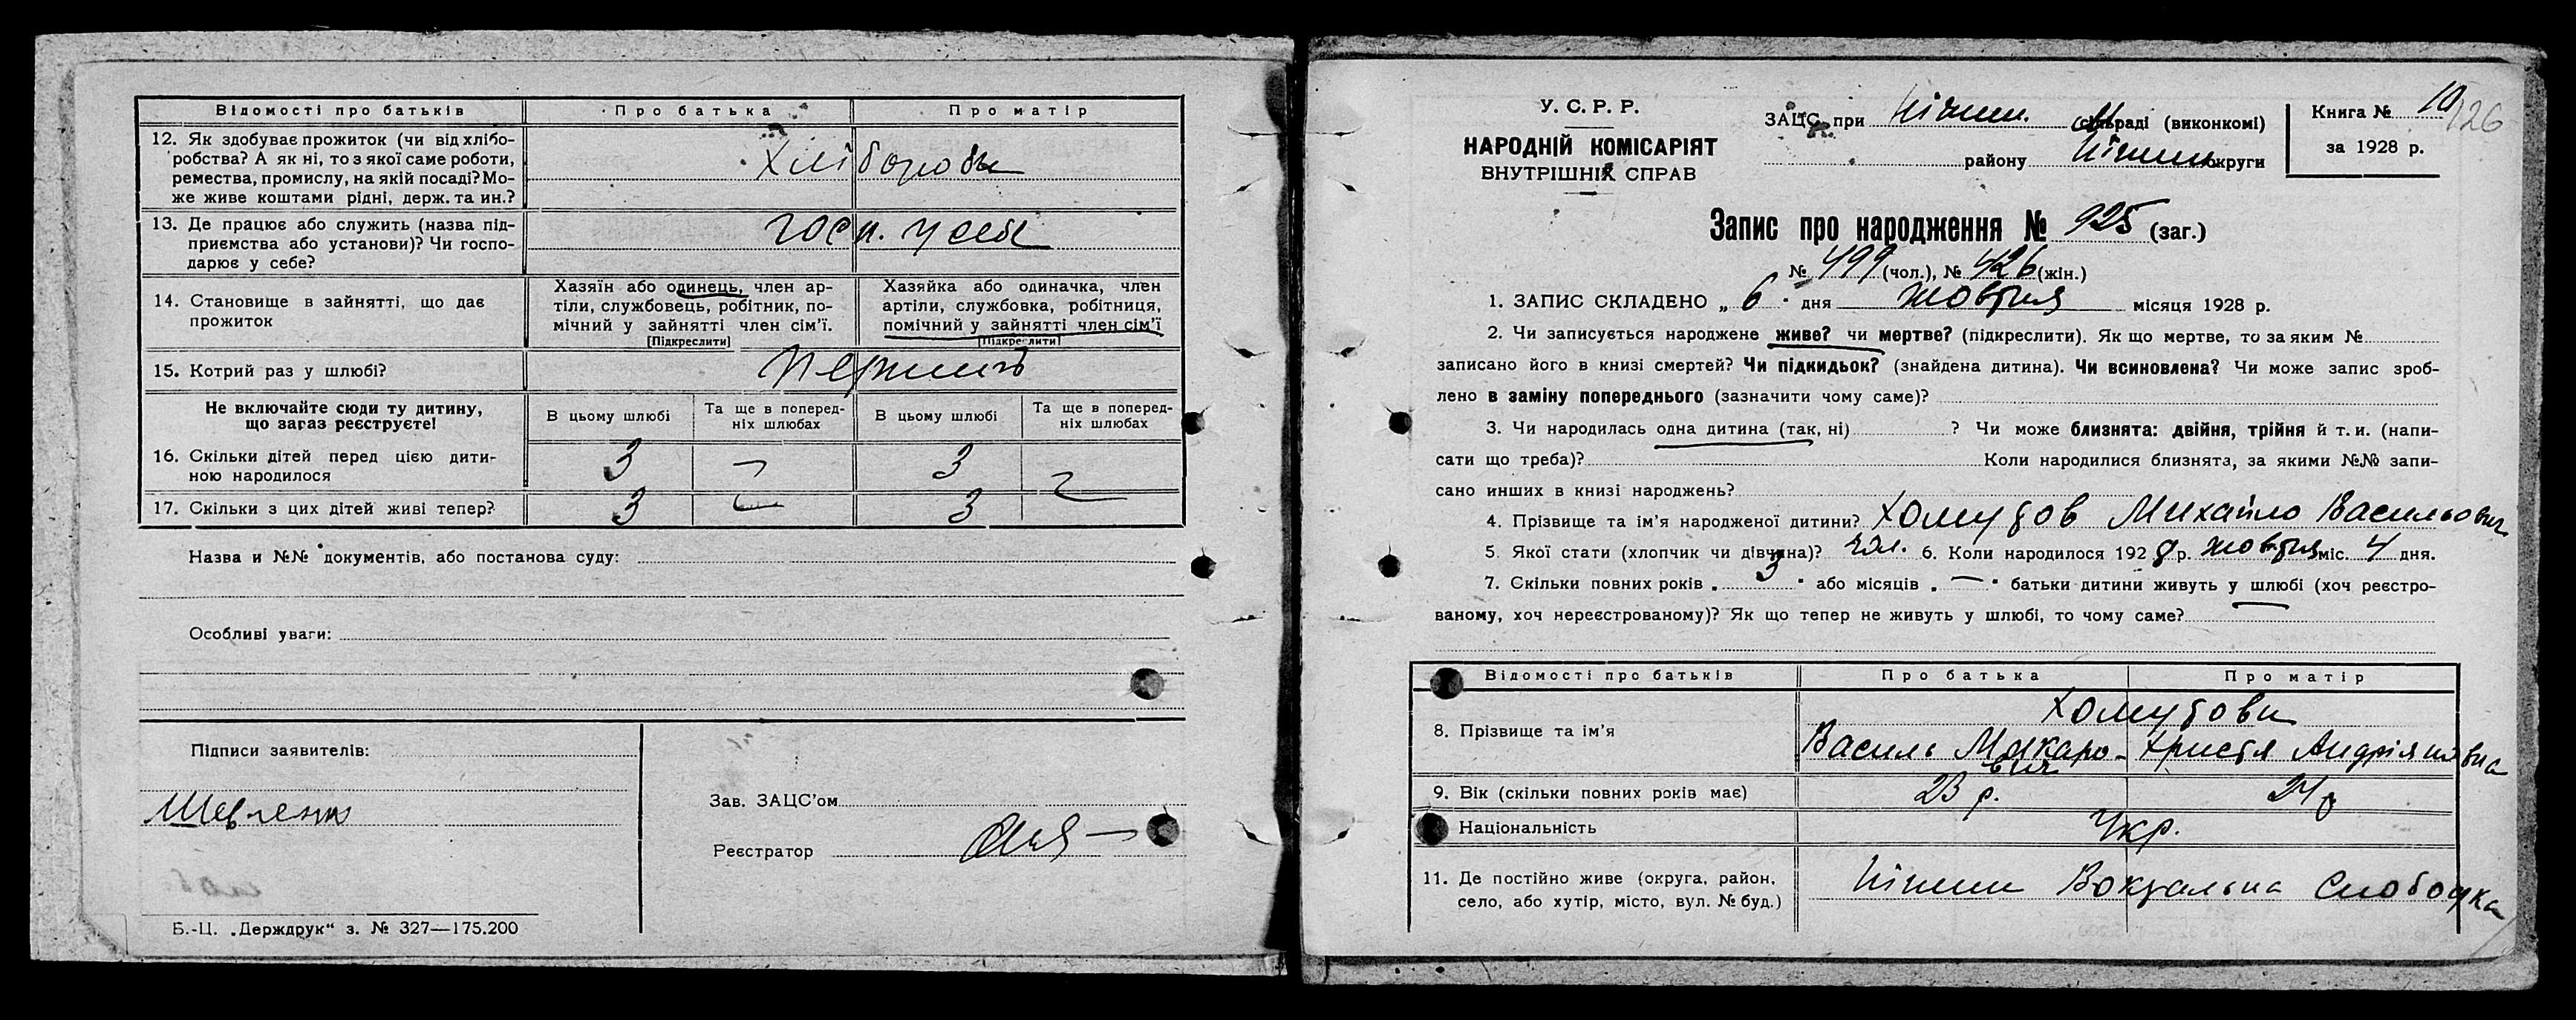 Відомості про батьків Про батька Про матір
12. Як здобуває прожиток (чи від хлібо-
робства? А як ні, то з якої саме роботи,
ремества, промислу, на якій посаді? Мо-
же живе коштами рідні, держ. та ин.?
Хлібороби
13. Де працює або служить (назва під-
приємства або установи)? Чи госпо-
дарює у себе?
госп. у себе
14. Становище в зайнятті, що дає
прожиток
Хазяїн або одинець, член ар-
тіли, службовець, робітник, по-
мічний у зайнятті член сім'ї.
[Підкреслити]
Хазяйка або одиначка, член
артіли, службовка, робітниця,
помічний у зайнятті член сім'ї
[Підкреслити]
15. Котрий раз у шлюбі?
Не включайте сюди ту дитину,
що зараз реєструєте!
В цьому шлюбі
Та ще в поперед-
ніх шлюбах
В цьому шлюбі
Та ще в поперед-
ніх шлюбах
16. Скільки дітей перед цією дити-
ною народилося
3 — 3 —
17. Скільки з цих дітей живі тепер?
3 — 3
Назва и №№ документів, або постанова суду:
Особливі уваги:
Підписи заявителів:
Зав. ЗАЦС'ом
Реєстратор
Б.-Ц. „Держдрук“ з. № 327—175.200
У. С. Р. Р.
НАРОДНІЙ КОМІСАРІЯТ
ВНУТРІШНІХ СПРАВ
ЗАЦС при Ніжин. раді (виконкомі)
району Ніжин округи
Книга № 10
за 1928 р.
126
Запис про народження № 925 (заг.)
№ 499 (чол.), № 426 (жін.)
1. ЗАПИС СКЛАДЕНО „ 6 " дня жовтня місяця 1928 р.
2. Чи записується народжене живе? чи мертве? (підкреслити). Як що мертве, то за яким №
записано його в книзі смертей? Чи підкидьок? (знайдена дитина). Чи всиновлена? Чи може запис зроб-
лено в заміну попереднього (зазначити чому саме)?
3. Чи народилась одна дитина (так, ні) ? Чи може близнята: двійня, трійня й т. и. (напи-
сати що треба)? Коли народилися близнята, за якими №№ запи-
сано инших в книзі народжень?
4. Прізвище та ім'я народженої дитини? Хомутов Михайло Васильович
5. Якої стати (хлопчик чи дівчина)? чол. 6. Коли народилося 1928 р. жовтня міс. 4 дня.
7. Скільки повних років „ 3 " або місяців „ — " батьки дитини живуть у шлюбі (хоч реєстро-
ваному, хоч нереєстрованому)? Як що тепер не живуть у шлюбі, то чому саме?
Відомості про батьків Про батька Про матір
8. Прізвище та ім'я
Хомутови
Василь Макаро- Христя Андріянівна
вич
9. Вік (скільки повних років має) 23 р. 24 р
Національність Укр.
11. Де постійно живе (округа, район,
село, або хутір, місто, вул. № буд.)
Ніжин Вокзальна Слободка